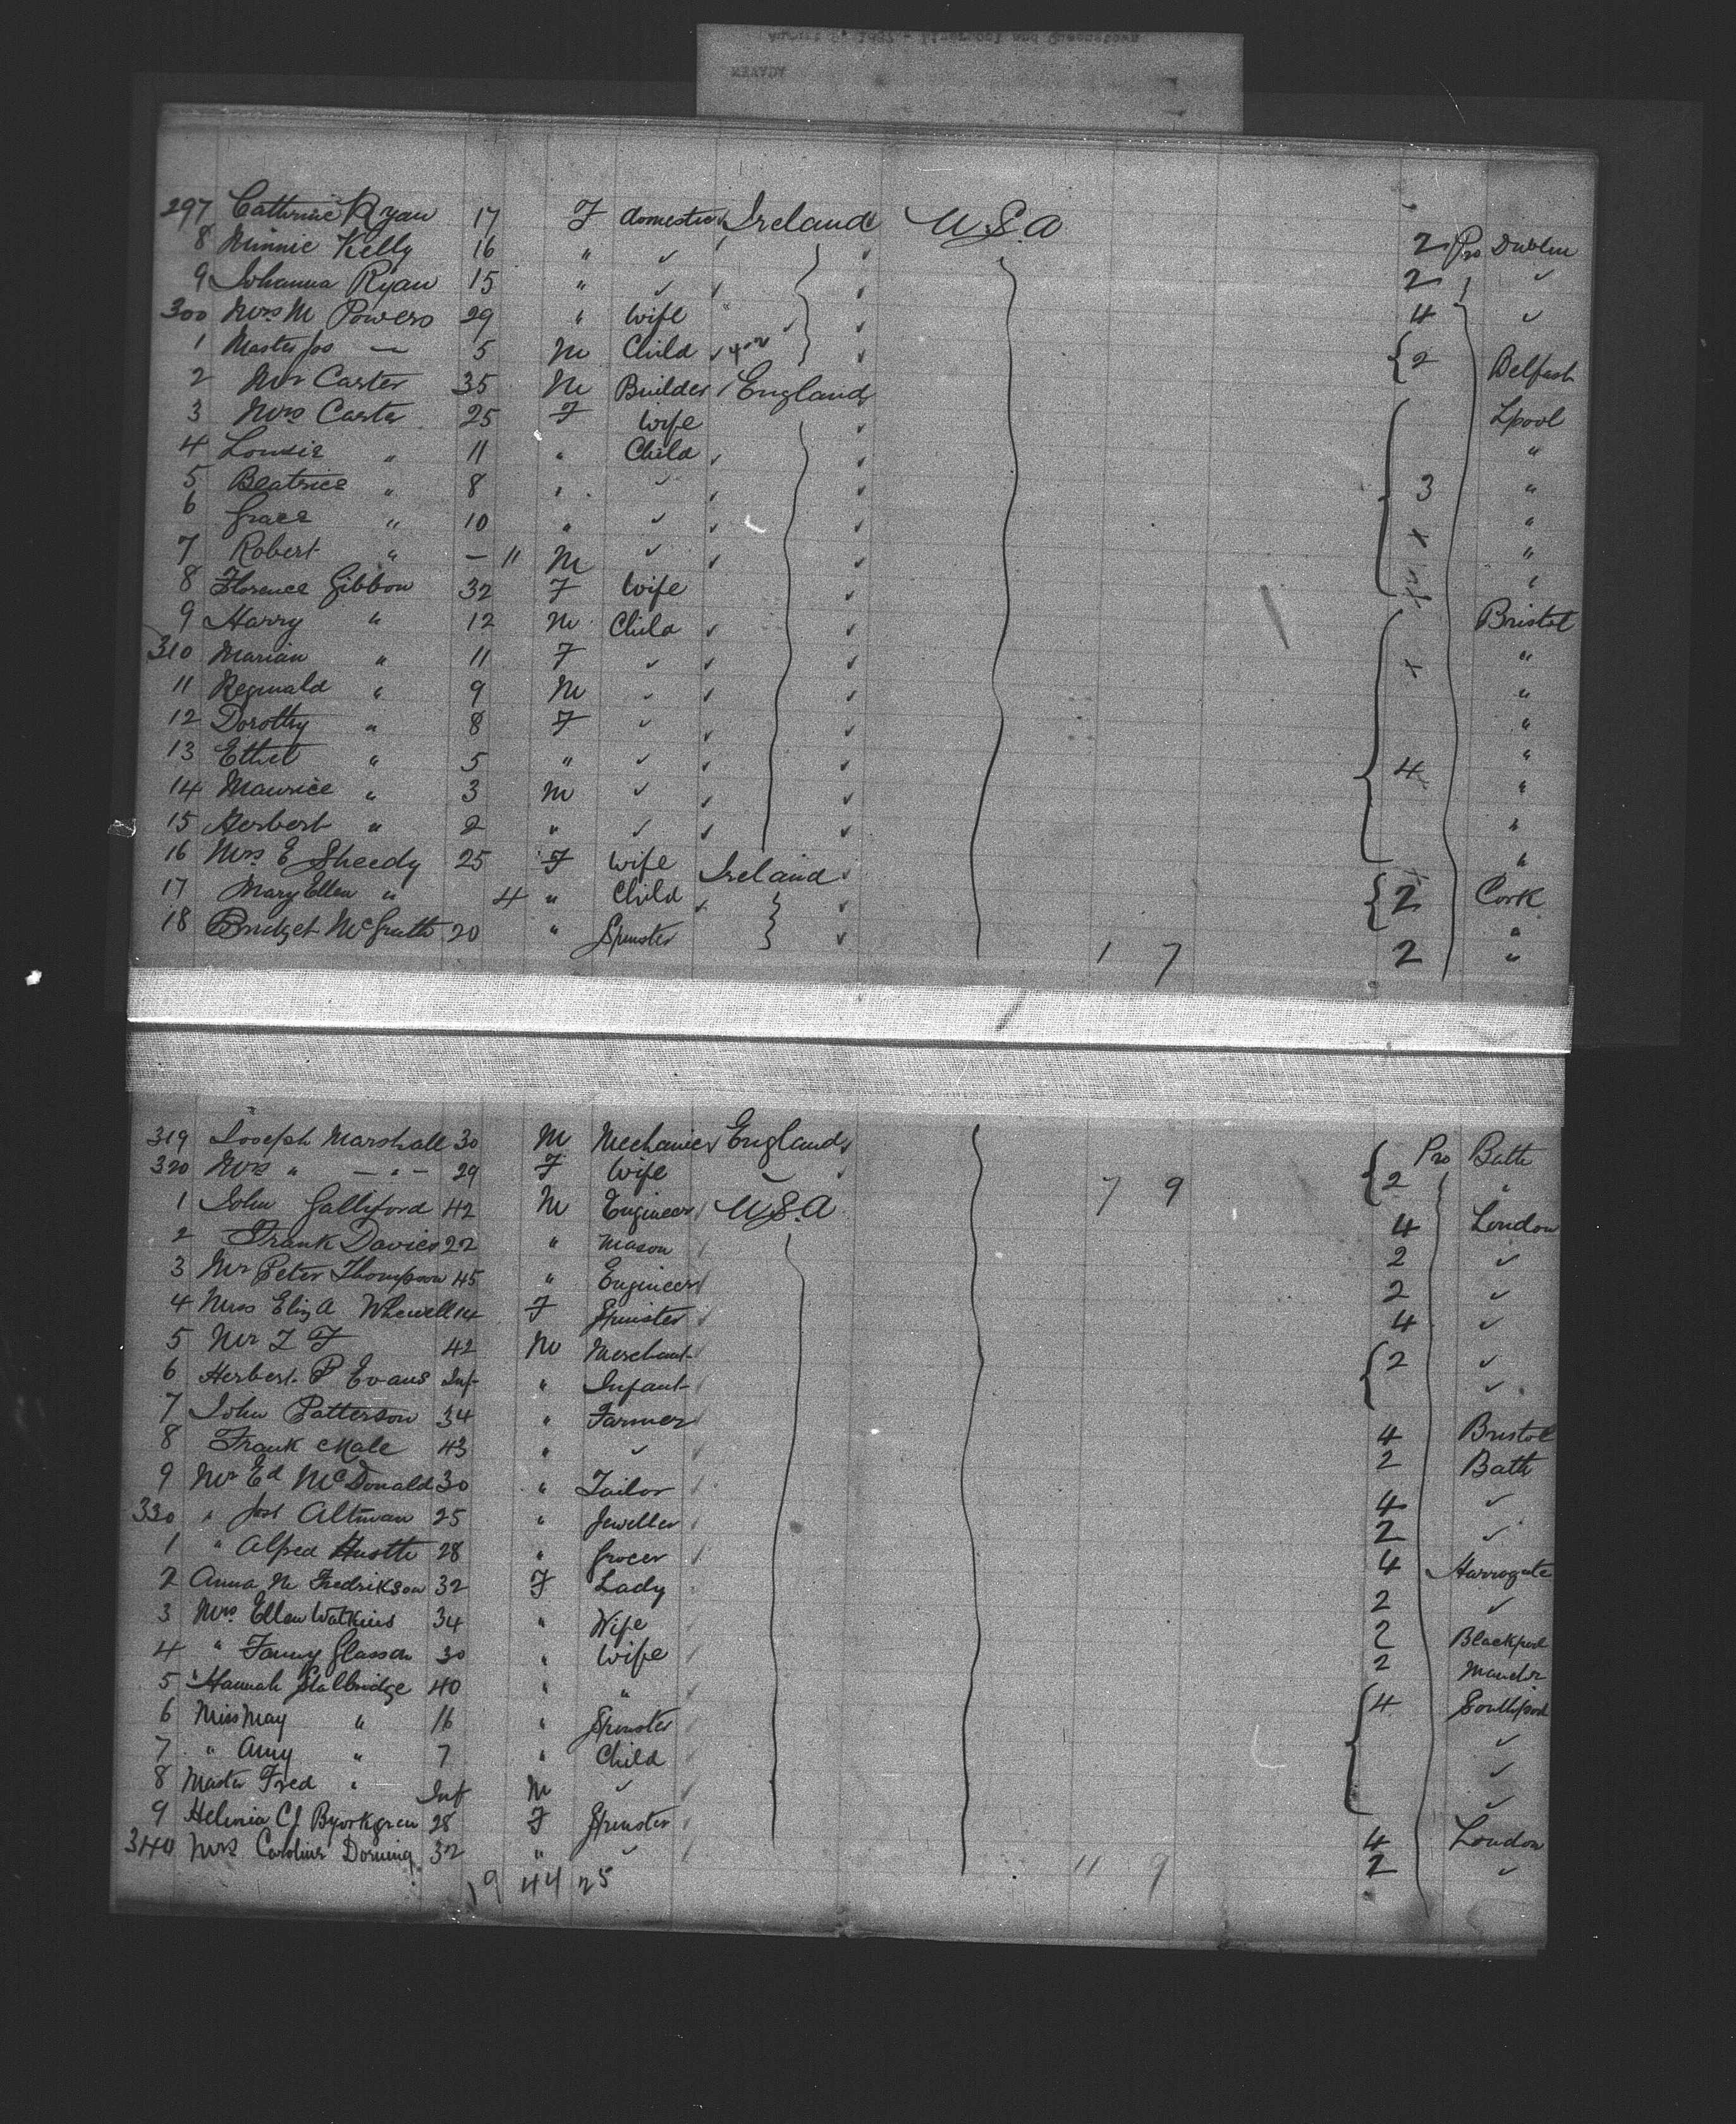 297 Catherine Ryan 17 F domestic Ireland U.S.A 2 Pro Dublin
8 Minnie Kelly 16 " ✓ 2 ✓
9 Johanna Ryan 15 " ✓ 4 ✓
300 Mrs M Powers 29 " Wife 2 Belfast
1 Master Jos — 5 M Child
2 Mr Carter 35 M Builder England Lpool
3 Mrs Carter 25 F Wife "
4 Lousie " 11 " Child "
5 Beatrice " 8 " ✓ 3 "
6 Grace " 10 " ✓ "
7 Robert " — 11 M ✓ "
8 Florence Gibbon 32 F Wife Bristol
9 Harry " 12 M Child "
310 Marian " 11 F ✓ "
11 Reginald " 9 M ✓ "
12 Dorothy " 8 F ✓ "
13 Ethel " 5 " ✓ 4 "
14 Maurice " 3 M ✓ "
15 Herbert " 2 " ✓ "
16 Mrs E Sheedy 25 F Wife Ireland 2 Cork
17 Mary Ellen " 4 " Child "
18 Bridget McGrath 20 " Spinster 1 7 2 "
319 Joseph Marshall 30 M Mechanic England Pro Bath
320 Mrs " — " — 29 F Wife 7 9 2 "
1 John Galliford 42 M Engineer U.S.A 4 London
2 Frank Davies 22 " Mason 2 ✓
3 Mr Peter Thompson 45 " Engineer 2 ✓
4 Miss Eliza Whewell 14 F Spinster 4 ✓
5 Mr 42 M Merchant 2 ✓
6 Herbert P Evans Inf " Infant ✓
7 John Patterson 34 " Farmer 4 Bristol
8 Frank Male 43 " ✓ 2 Bath
9 Mr Ed McDonald 30 " Tailor 4 ✓
330 " Altman 25 " Jeweller 2 ✓
1 " Alfred 28 " Grocer 4 Harrogate
2 Anna M Fredrikson 32 F Lady 2 ✓
3 Mrs Ellen Watkins 34 " Wife 2 Blackpool
4 " Fanny Glasson 30 " Wife 2
5 " Hannah Stalbridge 40 " " 4 Southport
6 Miss May " 16 " Spinster ✓
7 " Amy " 7 " Child ✓
8 Master Fred " Inf M ✓ ✓
9 28 F Spinster 4 London
340 Mrs Caroline 32 " ✓ 11 9 2 ✓
19 44 25